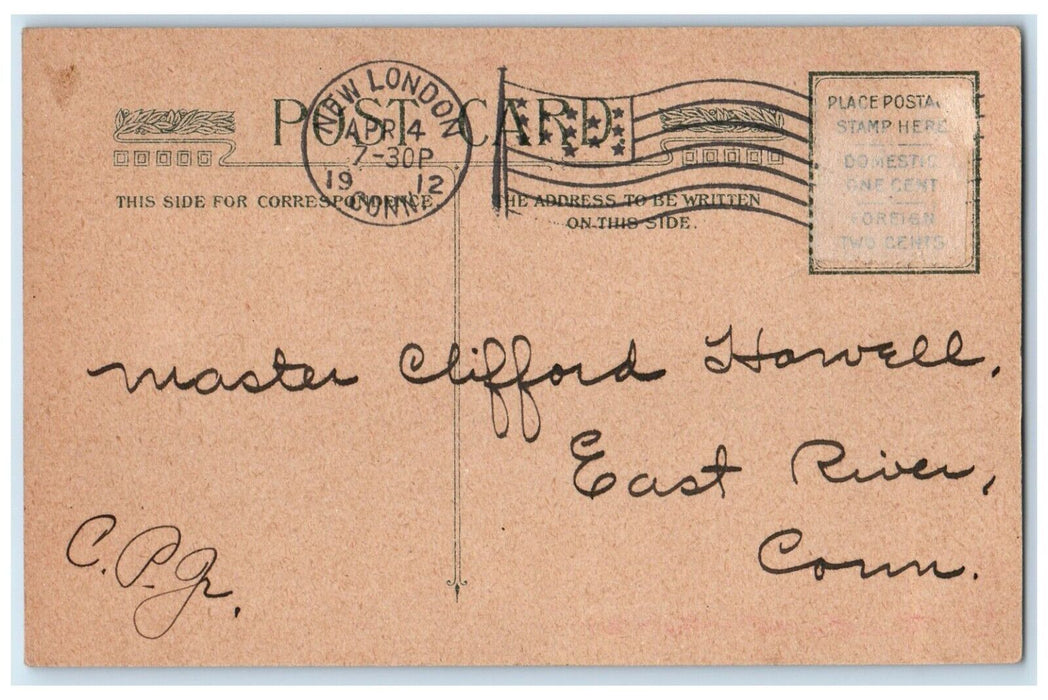 POST CARD
NEW LONDON
APR 4
7-30P
19 12
CONN.
PLACE POSTA
STAMP HERE
DOMESTIC
ONE CENT
FOREIGN
TWO CENTS
THIS SIDE FOR CORRESPONDENCE
THE ADDRESS TO BE WRITTEN
ON THIS SIDE.
Master Clifford Howell,
East River,
Conn.
C. P. Jr.